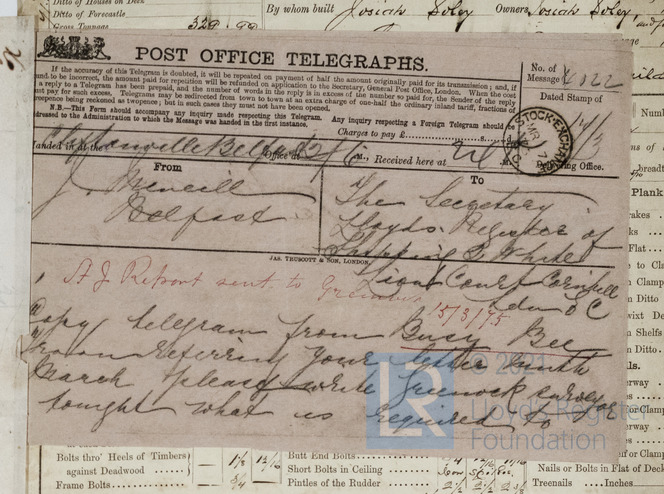 Ditto of Houses on Deck
Ditto of Forecastle
Gross Tonnage
329.99
By whom built Josiah Soley Owners Josiah Soley
POST OFFICE TELEGRAPHS.
If the accuracy of this Telegram is doubted, it will be repeated on payment of half the amount originally paid for its transmission; and, if
found to be incorrect, the amount paid for repetition will be refunded on application to the Secretary, General Post Office, London. When the cost
of a reply to a Telegram has been prepaid, and the number of words in the reply is in excess of the number so paid for, the Sender of the reply
must pay for such excess. Telegrams may be redirected from town to town at an extra charge of one-half the ordinary inland tariff, fractions of
twopence being reckoned as twopence; but in such cases they must not have been opened.
N.B.—This Form should accompany any inquiry made respecting this Telegram. Any inquiry respecting a Foreign Telegram should be
addressed to the Administration to which the Message was handed in the first instance.
Charges to pay £ s. d.
No. of
Message 4022
Dated Stamp of
Delivering Office.
STOCK-EXCHANGE
MR 17
Handed in at the Belfast Office at M., Received here at M.
From
J. McNeill
Belfast
To
The Secretary
Lloyds Register of
Shipping 2 White
Lion Court Cornhill
Ldn E C
JAS. TRUSCOTT & SON, LONDON.
A J Report sent to Greenock
15/3/75
Copy telegram from Busy Bee
Troon referring your letter ninth
March please write Greenock surveyor
tonight what is required to
© 2021
LR
Lloyd's Register
Foundation
Bolts thro' Heels of Timbers
against Deadwood
Frame Bolts
Butt End Bolts
Short Bolts in Ceiling
Pintles of the Rudder
Nails or Bolts in Flat of Deck
Treenails Inches